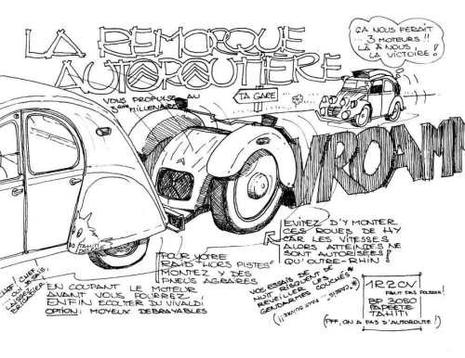 LA REMORQUE
AUTOROUTIERE
VOUS PROPULSE AU
3ème MILLENAIRE
TA GARE
ÇA NOUS FERAIT
3 MOTEURS !!
LÀ À NOUS,
LA VICTOIRE!
VROAMM
EVITEZ D'Y MONTER
CES ROUES DE HY
CAR LES VITESSES
ALORS ATTEINDES NE
SONT AUTORISÉES
QU'OUTRE-RHIN!
POUR VOTRE
RAID "HORS PISTES"
MONTEZ Y DES
PNEUS AGRAIRES
EN COUPANT LE MOTEUR
AVANT VOUS POURREZ
ENFIN ECOUTER DU VIVALDI
OPTION: MOYEUX DEBRAYABLES
CHEF! CHEF
VOS ESSAIS DE
NUIT RISQUENT DE
REVEILLER LES
GENDARMES COUCHÉS
1R2CV
FAUT PAS POUSSER!
BP 3080
PAPEETE
TAHITI
(PFF, ON A PAS D'AUTOROUTE!)